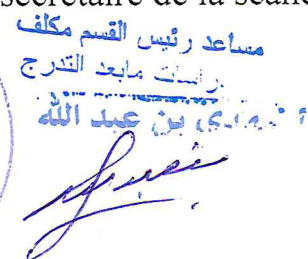 secrétaire de la séance
مساعد رئيس القسم مكلف
دراسات مابعد التدرج
بن عبد الله